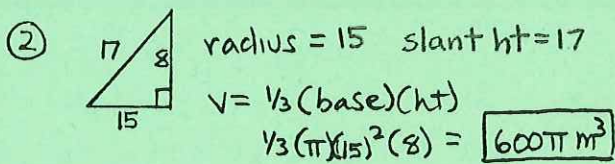 ② 17 8 15
radius = 15 slant ht = 17
V = 1/3 (base)(ht)
1/3 (π)(15)² (8) = 600π m³